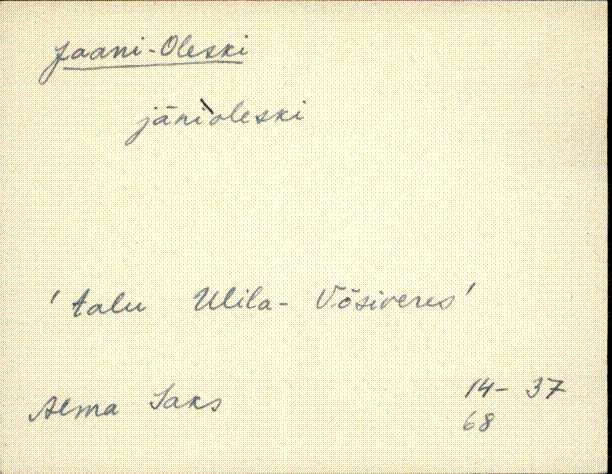 Jaani-Oleski
jāni`oleski
'talu Ulila- Võsiveres'
Alma Saks 14-37
68